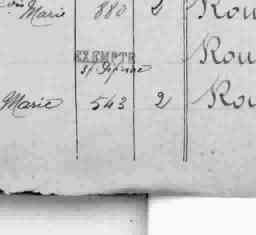 Marie 880 2 Rou
EXEMPTE Rou
Marie 543 2 Rou